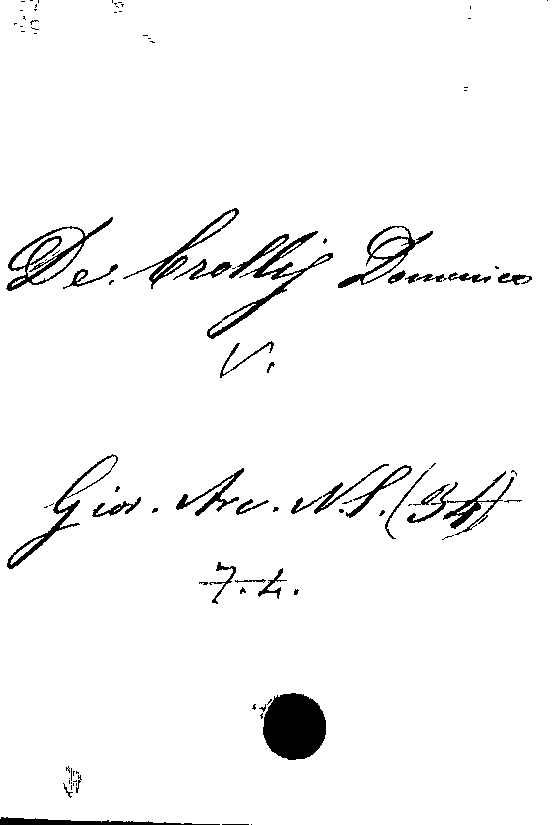 De' Crollis Domenico
V.
Gior. Arc. N.S. (34)
7. L.